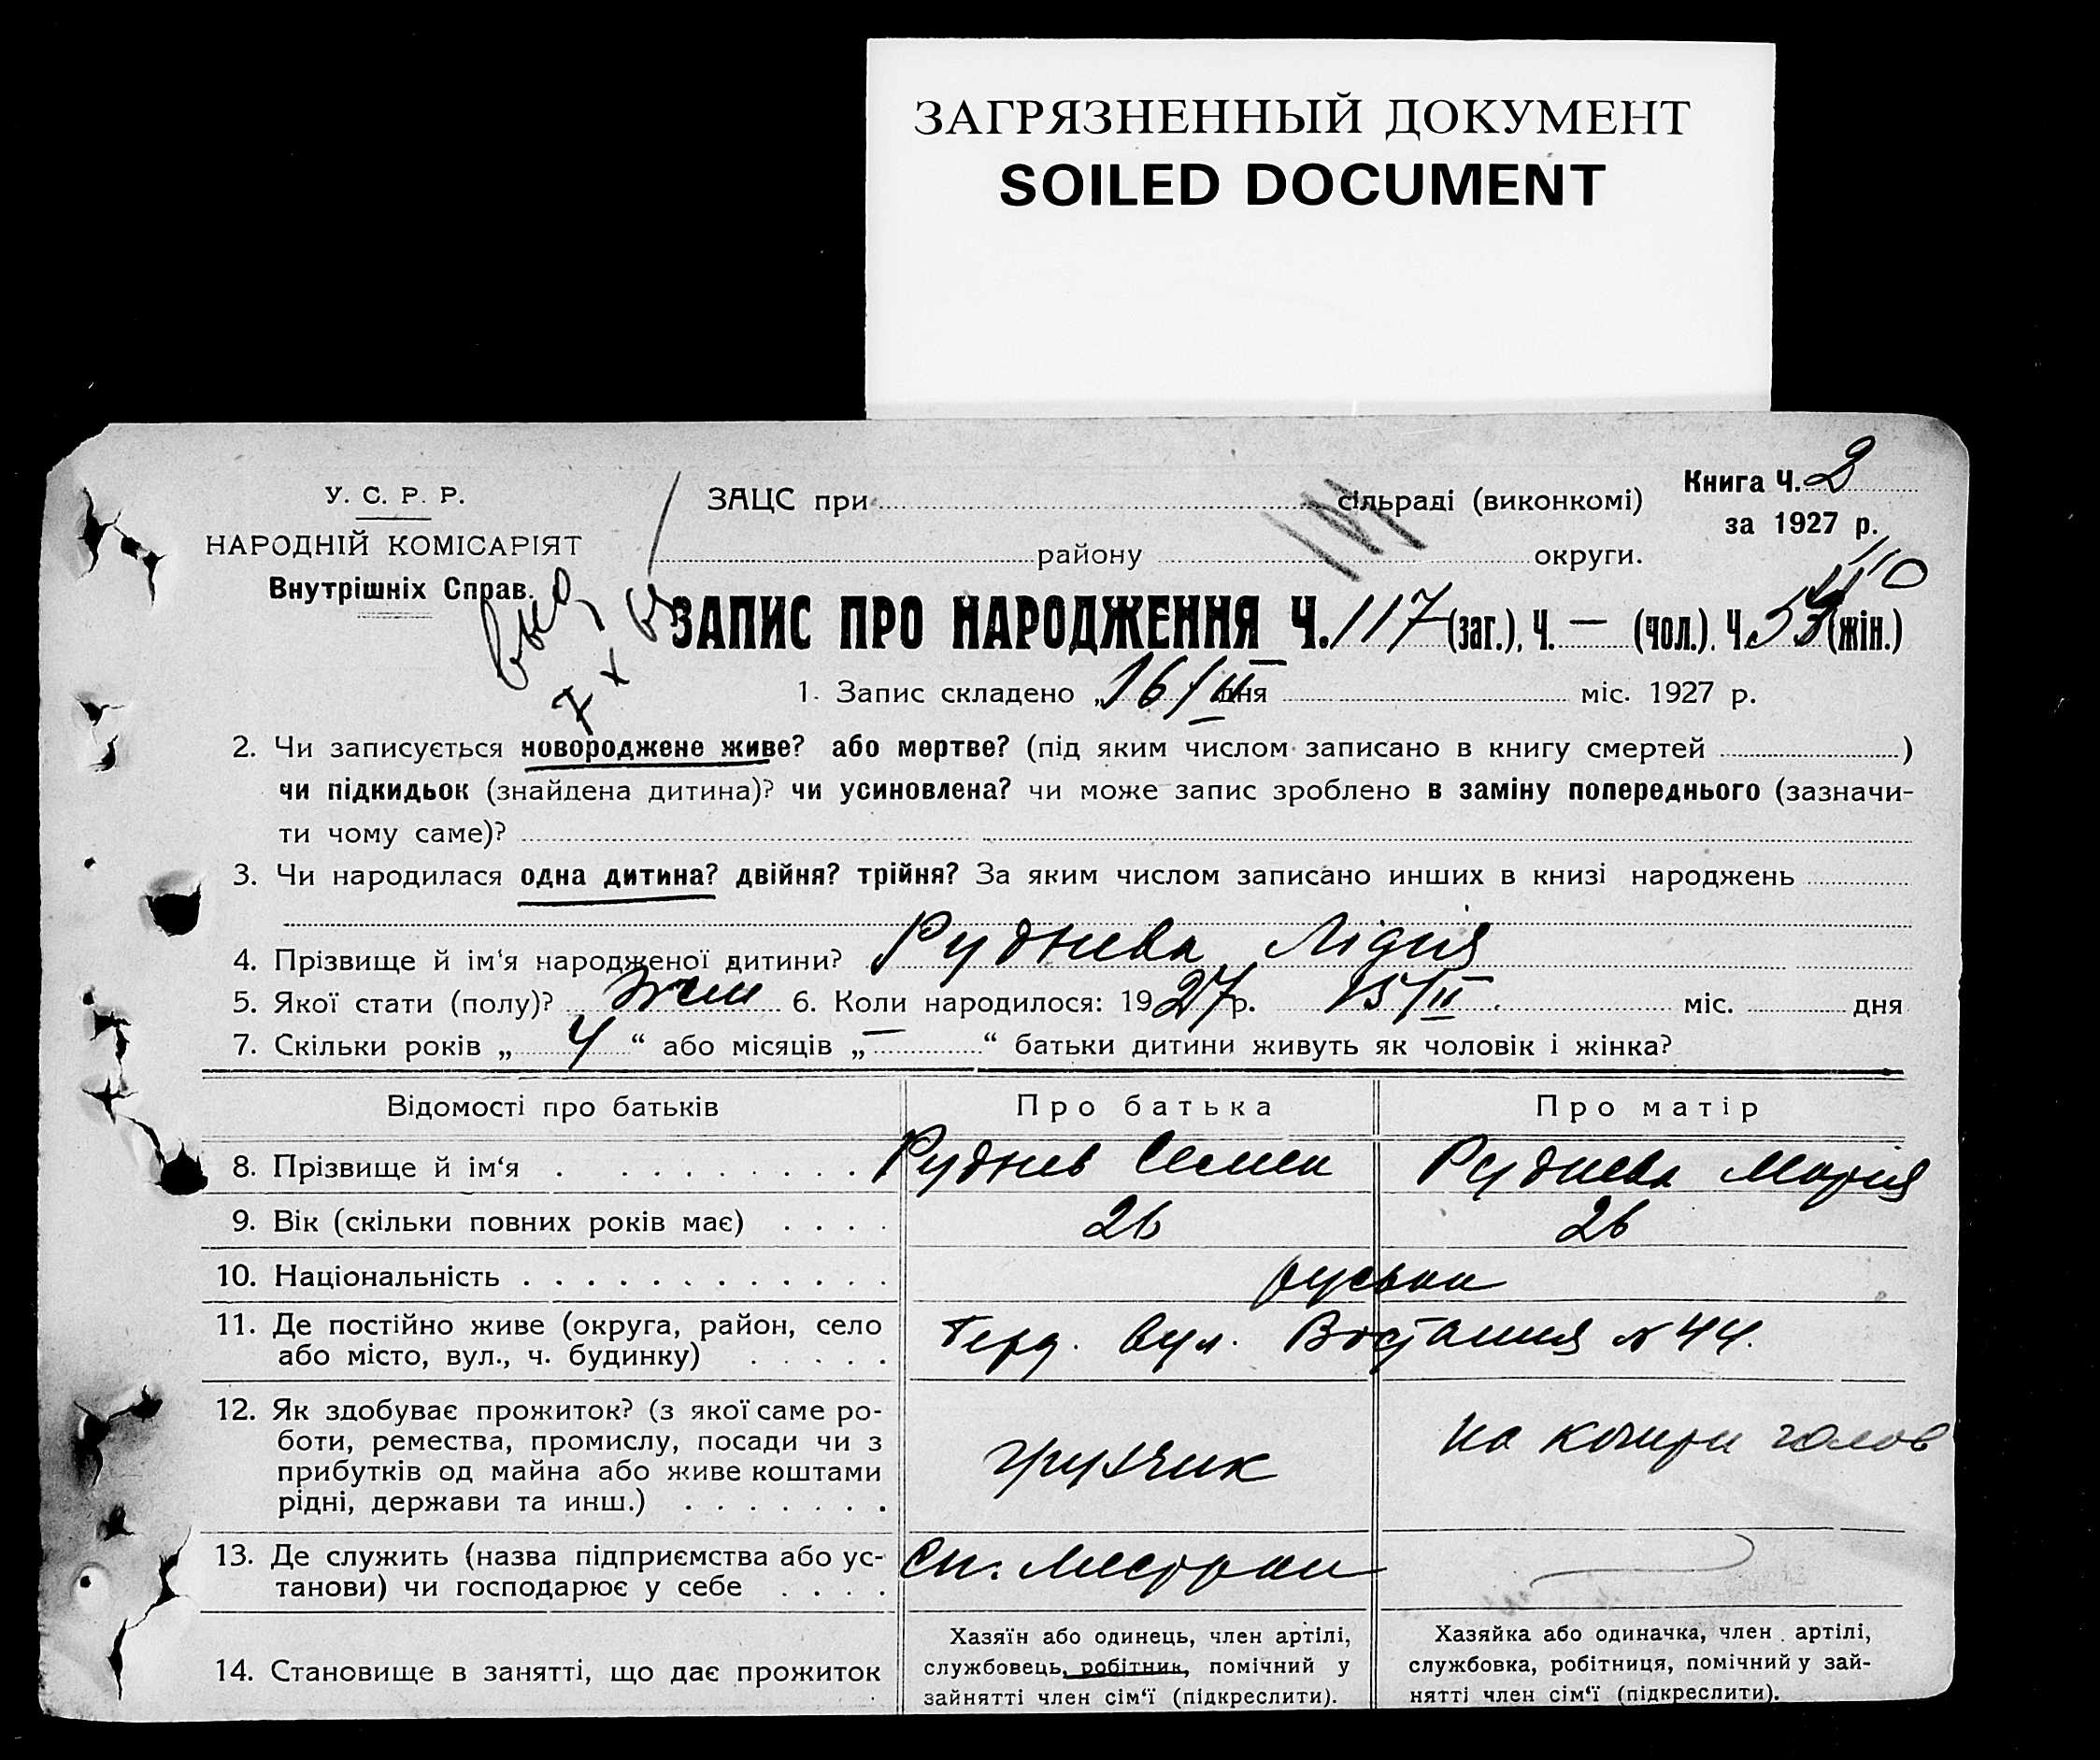 ЗАГРЯЗНЕННЫЙ ДОКУМЕНТ
SOILED DOCUMENT
У. С. Р. Р.
НАРОДНІЙ КОМІСАРІЯТ
Внутрішніх Справ.
ЗАЦС при сільраді (виконкомі)
району округи.
Книга Ч. 2
за 1927 р.
ЗАПИС ПРО НАРОДЖЕННЯ Ч. 117 (заг.), Ч. — (чол.). Ч. 53 (жін.)
1. Запис складено „ 16/II дня міс. 1927 р.
2. Чи записується новороджене живе? або мертве? (під яким числом записано в книгу смертей )
чи підкидьок (знайдена дитина)? чи усиновлена? чи може запис зроблено в заміну попереднього (зазначи-
ти чому саме)?
3. Чи народилася одна дитина? двійня? трійня? За яким числом записано инших в книзі народжень
4. Прізвище й ім‘я народженої дитини? Руднева Лідия
5. Якої стати (полу)? жін 6. Коли народилося: 1927 р. 15/II міс. дня
7. Скільки років „ 4 “ або місяців „ — “ батьки дитини живуть як чоловік і жінка?
Відомості про батьків Про батька Про матір
8. Прізвище й ім‘я Руднев Семен Руднева Марія
9. Вік (скільки повних років має) 26 26
10. Національність руські
11. Де постійно живе (округа, район, село
або місто, вул., ч. будинку)
вул. Востания № 44.
12. Як здобуває прожиток? (з якої саме ро-
боти, ремества, промислу, посади чи з
прибутків од майна або живе коштами
рідні, держави та инш.)
грузчик
на кошти голов
13. Де служить (назва підприємства або ус-
танови) чи господарює у себе
14. Становище в занятті, що дає прожиток
Хазяїн або одинець, член артілі,
службовець, робітник, помічний у
зайнятті член сім‘ї (підкреслити).
Хазяйка або одиначка, член артілі,
службовка, робітниця, помічний у зай-
нятті член сім‘ї (підкреслити).